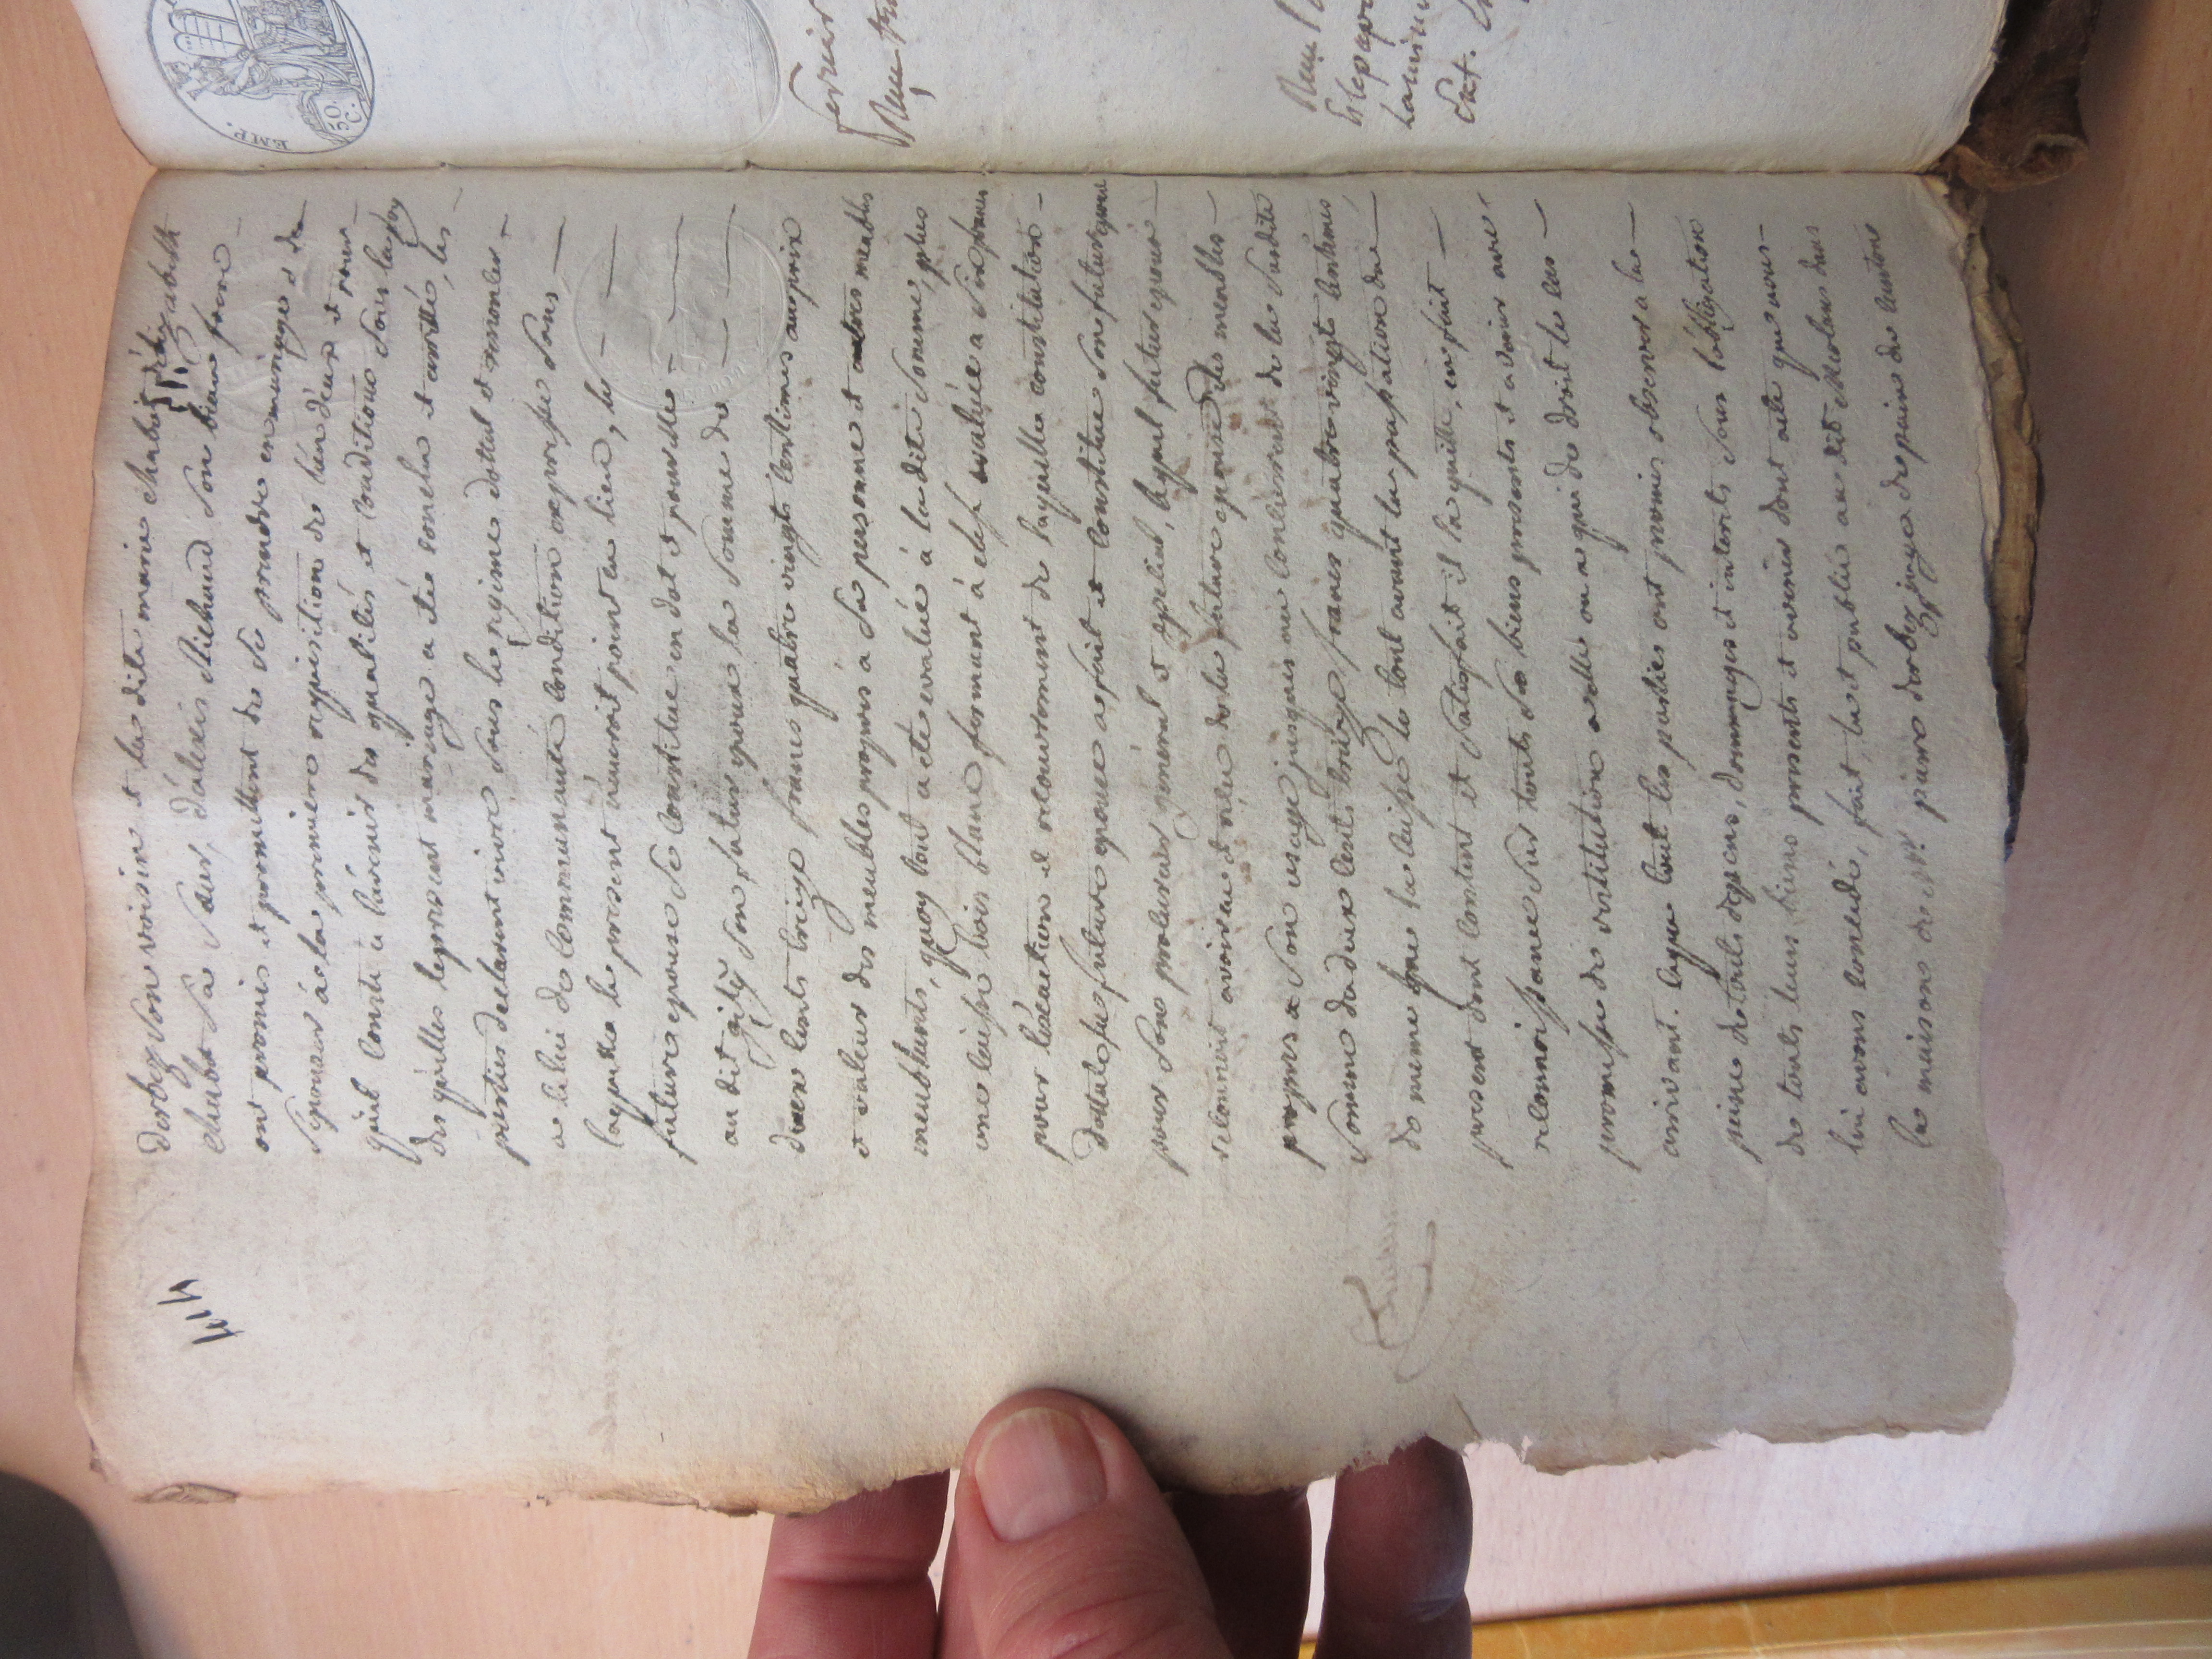 444
dorbez son voisin et la dite marie chabot
chabot sa sœur, d'alexis Michaud son beau frere
ont promis et promettent de se prendre en mariage et de
s'epouser à la premiere requisition de l'un d'eux et pour
qu'il conste a l'avenir des qualités et conditions sous les quels
des qu'elles le present mariage a été conclu et arretté, les
parties declarent vivre sous le regime dottal et renoncer
a celui de communauté condition expresse sans
laquelle le present n'auroit point eu lieu, la
future epouse se constitue en dot et pour elle
au dit son futur epoux la somme de
deux cents treize francs quatre vingts centimes au prix
et valeur des meubles propres a sa personne et autres meubles
meublants, quoy tout a eté evalué à la dite somme, plus
une caisse bois blanc fermant à clef evaluée a six francs
pour l'exaction et recouvrement de laquelle constitution
dottale la future epouse a fait et constitué son futur epoux
pour son procureur général et special, lequel futur epoux
reconnoit avoir eu et reçu de la future epouse des meubles
propres a son usage jusques au concurrent de la susdite
somme de deux cents treize francs quatre vingts centimes
de meme que la caisse le tout avant la passation du
present dont content et satisfait il la quitte, en fait
reconnoissance sur touts ses biens presents et a venir avec
promesse de restitution a elle ou a qui de droit le cas
arrivant. ce que tout les parties ont promis observer a
peine de touts depens, dommages et interets sous l'obligation
de touts leurs biens presents et avenir dont acte que nous
lui avons concedé, fait, lu et publié au dit
la maison de Mr. pierre dorbez juge de paix du canton
E.M.P.
50
C.